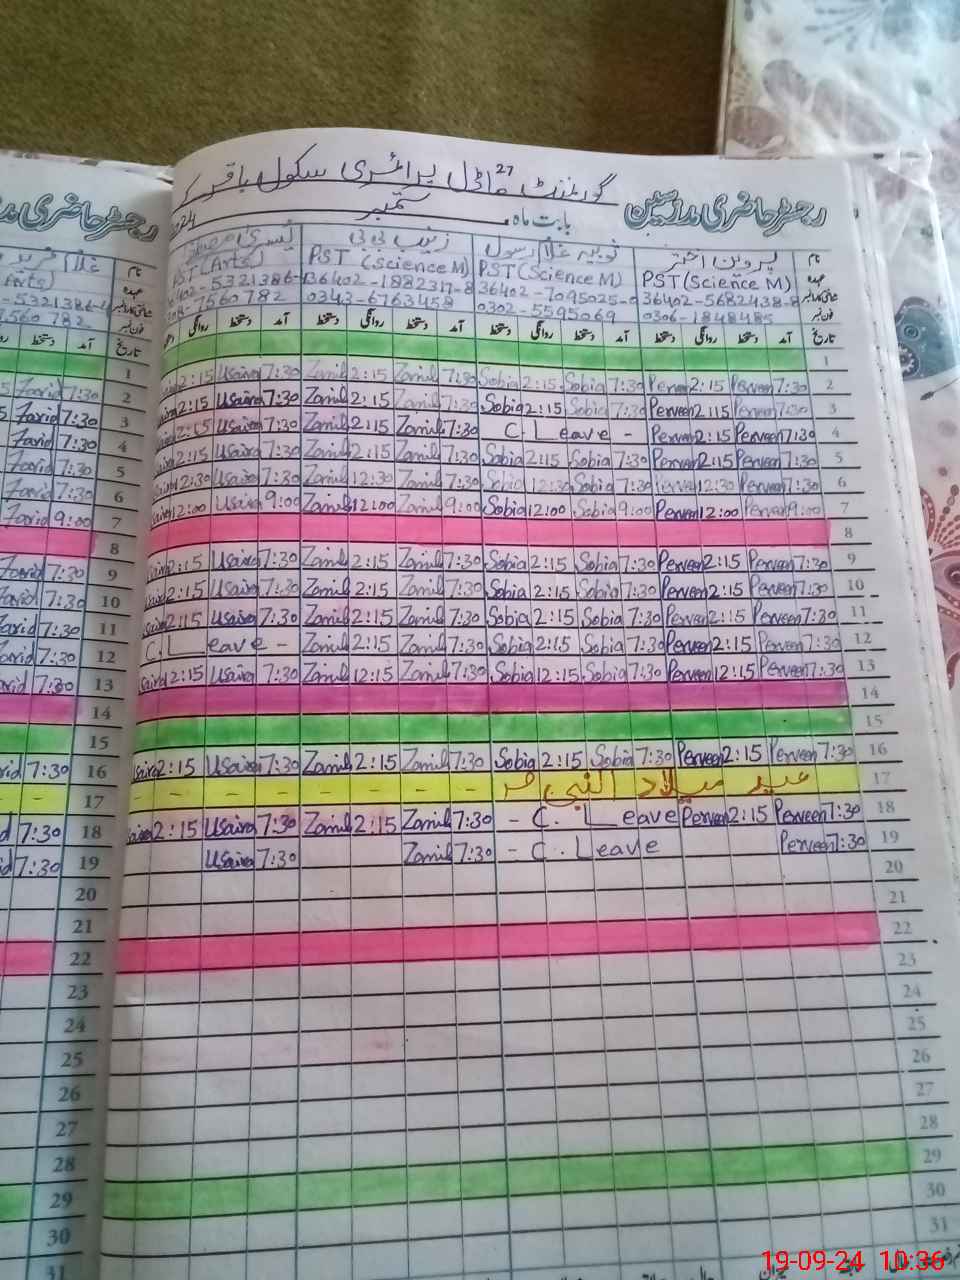 گورنمنٹ ماڈل پرائمری سکول باقر
27
رجسٹر حاضری مدرسین
بابت ماہ ستمبر
نام پروین اختر ثوبیہ غلام رسول زینب بی بی
عہدہ PST(Science M) PST(Science M) PST (Science M) PST(Arts)
36402-5682438-8 36402-7095025-0 36402-1882317-8
فون نمبر 0306-1848485 0302-5595069 0343-6763458 7560782
تاریخ آمد دستخط روانگی دستخط آمد دستخط روانگی دستخط آمد دستخط روانگی دستخط آمد دستخط روانگی
1
2:15 Usaira 7:30 Zainib 2:15 Zainib 7:30 Sobia 2:15 Sobia 7:30 Perveen 2:15 Perveen 7:30 2
2:15 Usaira 7:30 Zainib 2:15 Zainib 7:30 Sobia 2:15 Sobia 7:30 Perveen 2:15 Perveen 7:30 3
2:15 Usaira 7:30 Zainib 2:15 Zainib 7:30 C. Leave - Perveen 2:15 Perveen 7:30 4
2:15 Usaira 7:30 Zainib 2:15 Zainib 7:30 Sobia 2:15 Sobia 7:30 Perveen 2:15 Perveen 7:30 5
12:30 Usaira 7:30 Zainib 12:30 Zainib 7:30 Sobia 12:30 Sobia 7:30 Perveen 12:30 Perveen 7:30 6
12:00 Usaira 9:00 Zainib 12:00 Zainib 9:00 Sobia 12:00 Sobia 9:00 Perveen 12:00 Perveen 9:00 7
8
2:15 Usaira 7:30 Zainib 2:15 Zainib 7:30 Sobia 2:15 Sobia 7:30 Perveen 2:15 Perveen 7:30 9
2:15 Usaira 7:30 Zainib 2:15 Zainib 7:30 Sobia 2:15 Sobia 7:30 Perveen 2:15 Perveen 7:30 10
2:15 Usaira 7:30 Zainib 2:15 Zainib 7:30 Sobia 2:15 Sobia 7:30 Perveen 2:15 Perveen 7:30 11
C. Leave - Zainib 2:15 Zainib 7:30 Sobia 2:15 Sobia 7:30 Perveen 2:15 Perveen 7:30 12
12:15 Usaira 7:30 Zainib 12:15 Zainib 7:30 Sobia 12:15 Sobia 7:30 Perveen 12:15 Perveen 7:30 13
14
15
Usaira 2:15 Usaira 7:30 Zainib 2:15 Zainib 7:30 Sobia 2:15 Sobia 7:30 Perveen 2:15 Perveen 7:30 16
عید میلاد النبی 17
2:15 Usaira 7:30 Zainib 2:15 Zainib 7:30 - C. Leave Perveen 2:15 Perveen 7:30 18
Usaira 7:30 Zainib 7:30 - C. Leave Perveen 7:30 19
20
21
22
23
24
25
26
27
28
29
30
31
رجسٹر حاضری
نام
عہدہ
فون نمبر
تاریخ
1
Farid 7:30 2
Farid 7:30 3
Farid 7:30 4
Farid 7:30 5
Farid 7:30 6
Farid 9:00 7
8
Farid 7:30 9
Farid 7:30 10
Farid 7:30 11
Farid 7:30 12
Farid 7:30 13
14
15
7:30 16
17
7:30 18
7:30 19
20
21
22
23
24
25
26
27
28
29
30
31
19-09-24 10:36